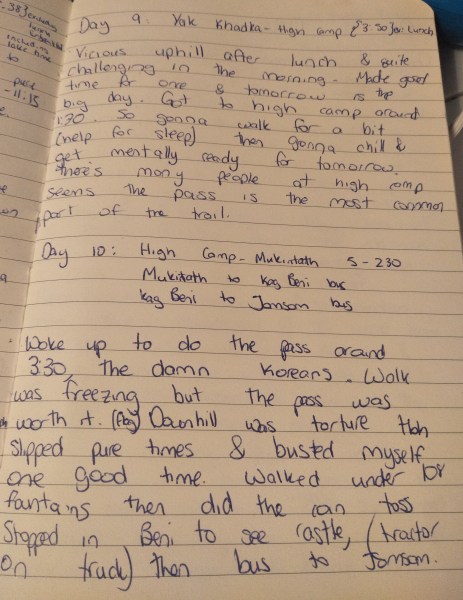 .38} 
time
including
lake time
to
- 11.15
Day 9: Yak Khadka - High Camp {3.30} for lunch
Vicious uphill after lunch & quite
challenging in the morning. Made good
time for one & tomorrow is the
big day. Got to high camp around
1:30. So gonna walk for a bit
(help for sleep) then gonna chill &
get mentally ready for tomorrow.
There's many people at high camp
seems the pass is the most common
part of the trail.
Day 10: High Camp - Mukintath 5 - 230
Mukitath to Kag Beni bus
Kag Beni to Jomsom bus
Woke up to do the pass around
3:30, the damn Koreans. Walk
was freezing but the pass was
worth it. Downhill was torture tbh
slipped pure times & busted myself
one good time. Walked under 108
fountains then did the coin toss
Stopped in Beni to see castle, (tractor
on truck) then bus to Jomsom.